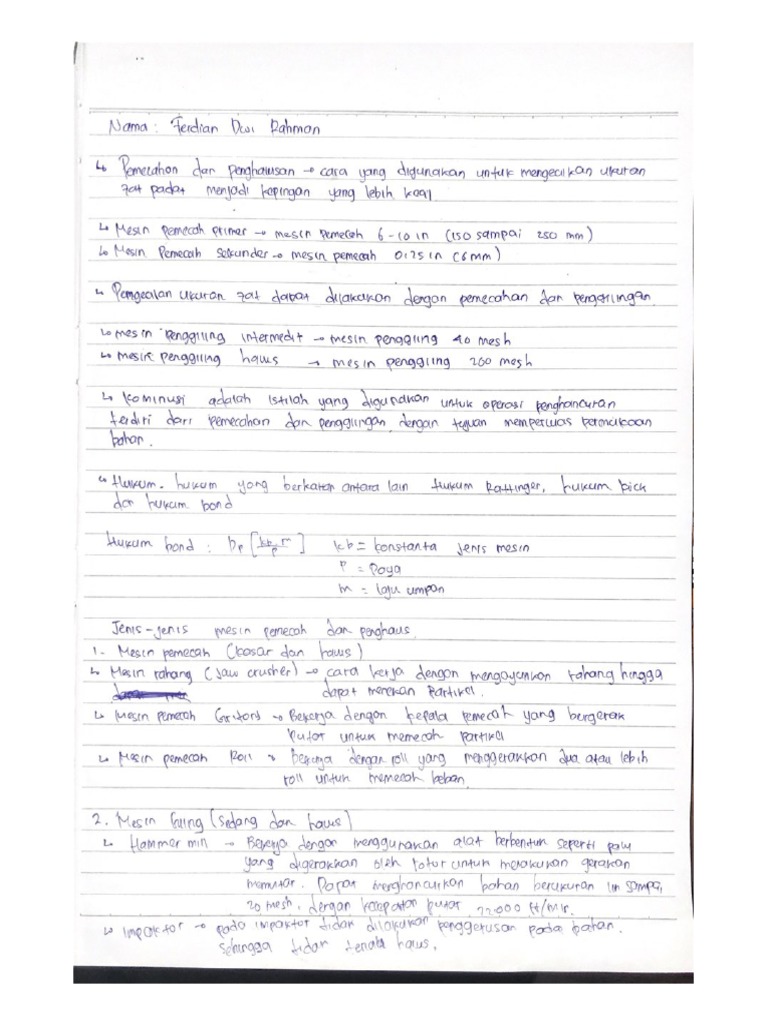 Nama : Ferdian Dwi Rahman
↳ Pemecahan dan penghalusan → cara yang digunakan untuk mengecilkan ukuran
zat padat menjadi kepingan yang lebih kecil
↳ Mesin pemecah primer → mesin pemecah 6-10 in (150 sampai 250 mm)
↳ Mesin Pemecah sekunder → mesin pemecah 0,25 in (6mm)
↳ Pengecilan ukuran zat dapat dilakukan dengan pemecahan dan penggilingan.
↳ mesin penggiling intermedit → mesin penggiling 40 mesh
↳ mesin penggiling halus → mesin penggiling 200 mesh
↳ Kominusi adalah istilah yang digunakan untuk operasi penghancuran
terdiri dari pemecahan dan penggilingan dengan tujuan memperluas permukaan
bahan.
↳ Hukum-hukum yang berkaitan antara lain Hukum Rattinger, hukum kick
dan hukum bond
Hukum bond : Dp [ ] kb = konstanta jenis mesin
P = Daya
m = laju umpan
Jenis-jenis mesin pemecah dan penghalus
1. Mesin pemecah (kasar dan halus)
↳ Mesin rahang (Jaw crusher) → cara kerja dengan mengayunkan rahang hingga
dapat menekan Partikel.
↳ Mesin pemecah → Bekerja dengan kepala pemecah yang bergerak
putar untuk memecah partikel
↳ Mesin pemecah Roll → Bekerja dengan roll yang menggerakkan dua atau lebih
roll untuk memecah beban.
2. Mesin Giling (Sedang dan halus)
↳ Hammer → Bekerja dengan menggunakan alat berbentuk seperti palu
yang digerakkan oleh rotor untuk melakukan gerakan
memutar. Dapat menghancurkan bahan berukuran 1in sampai
20 mesh, dengan kecepatan putar 22.000 ft/
↳ Impaktor → pada impaktor tidak dilakukan penggerusan pada bahan.
sehingga tidak halus.